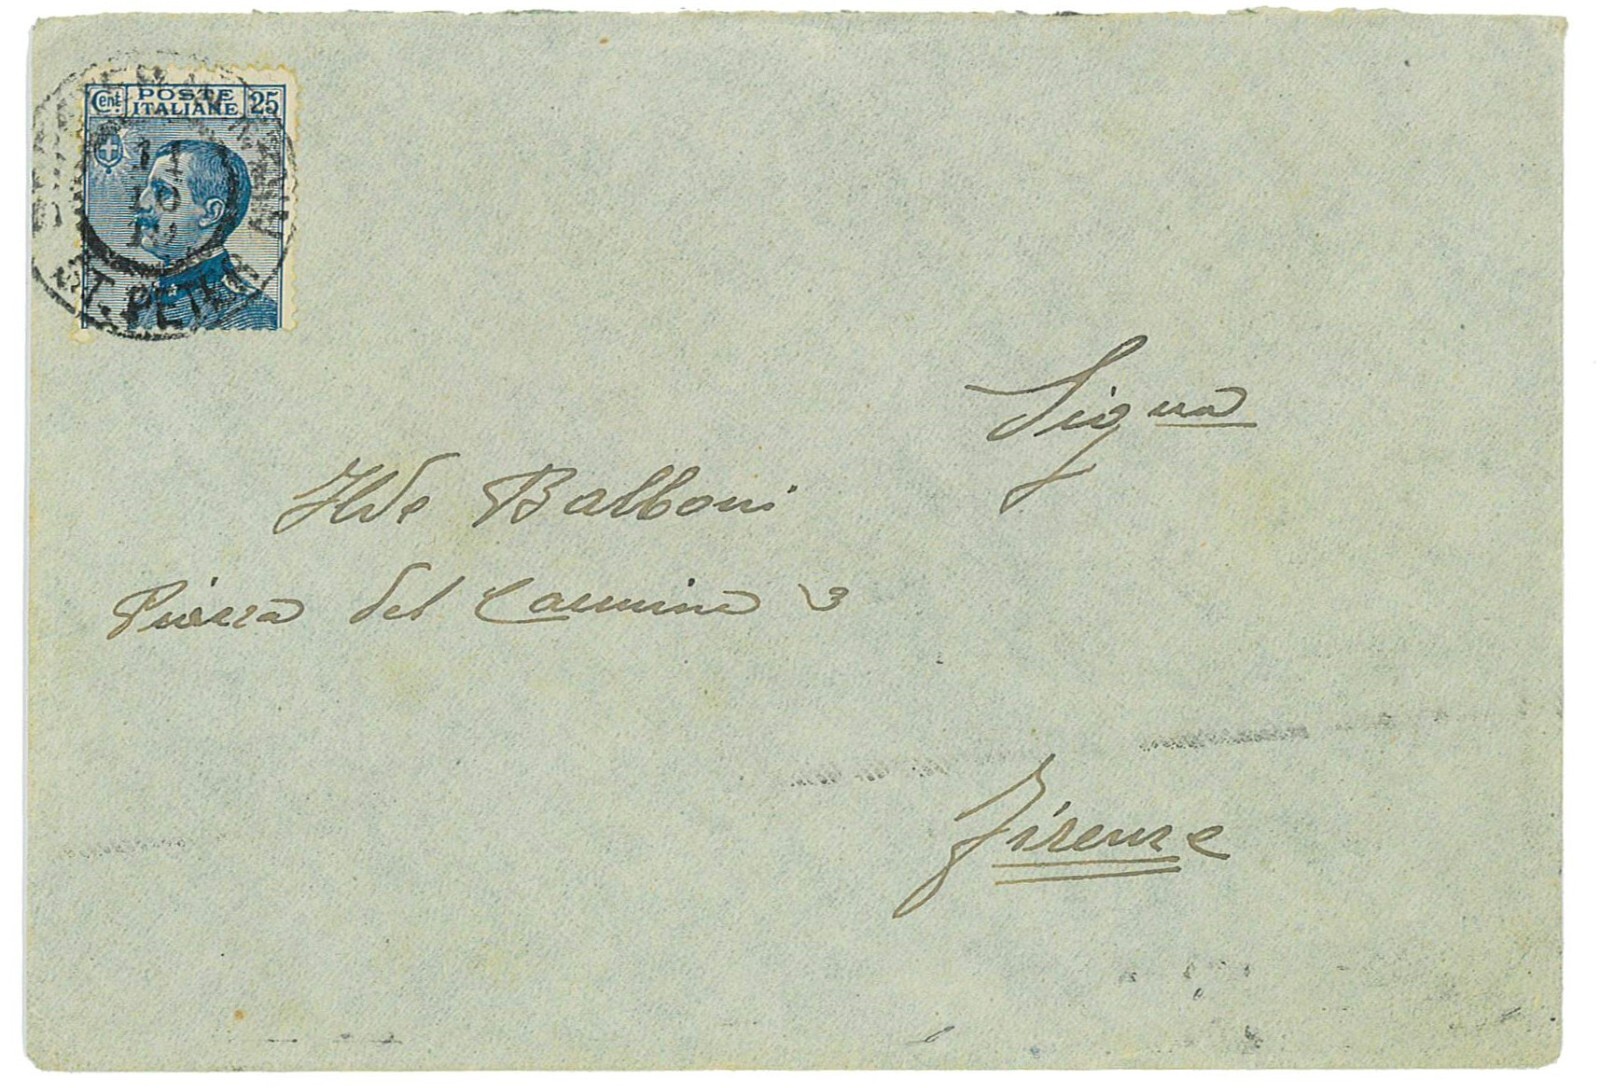 Cent. POSTE ITALIANE 25
ST. PETER
Sig.na
Ilde Balboni
Piazza del Carmine 3
Firenze